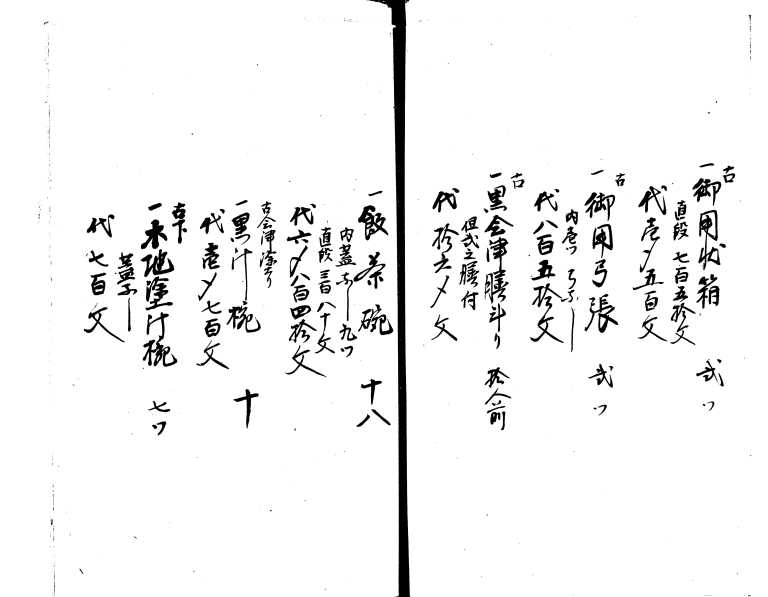 古
一御用状箱 弐ツ
直段 七百五拾文
代壱〆五百文
古
一御用弓張 弐ツ
内壱ツ
代八百五拾文
古
一黒会津膳斗り 拾人前
但弐之膳付
代拾六〆文
一飯茶碗 十八
内蓋なし九ツ
直段三百八十文
代六〆八百四拾文
古会津塗り
一黒汁椀 十
代壱〆七百文
古下
一木地塗汁椀 七ツ
蓋なし
代七百文